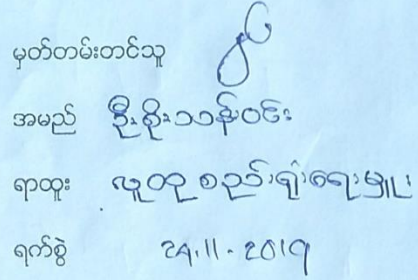 မှတ်တမ်းတင်သူ
အမည် ဦးစိုးသန်းဝင်း
ရာထူး လူထုစည်းရုံးရေးမှူး
ရက်စွဲ ၁၅.၁၁.၂၀၁၇